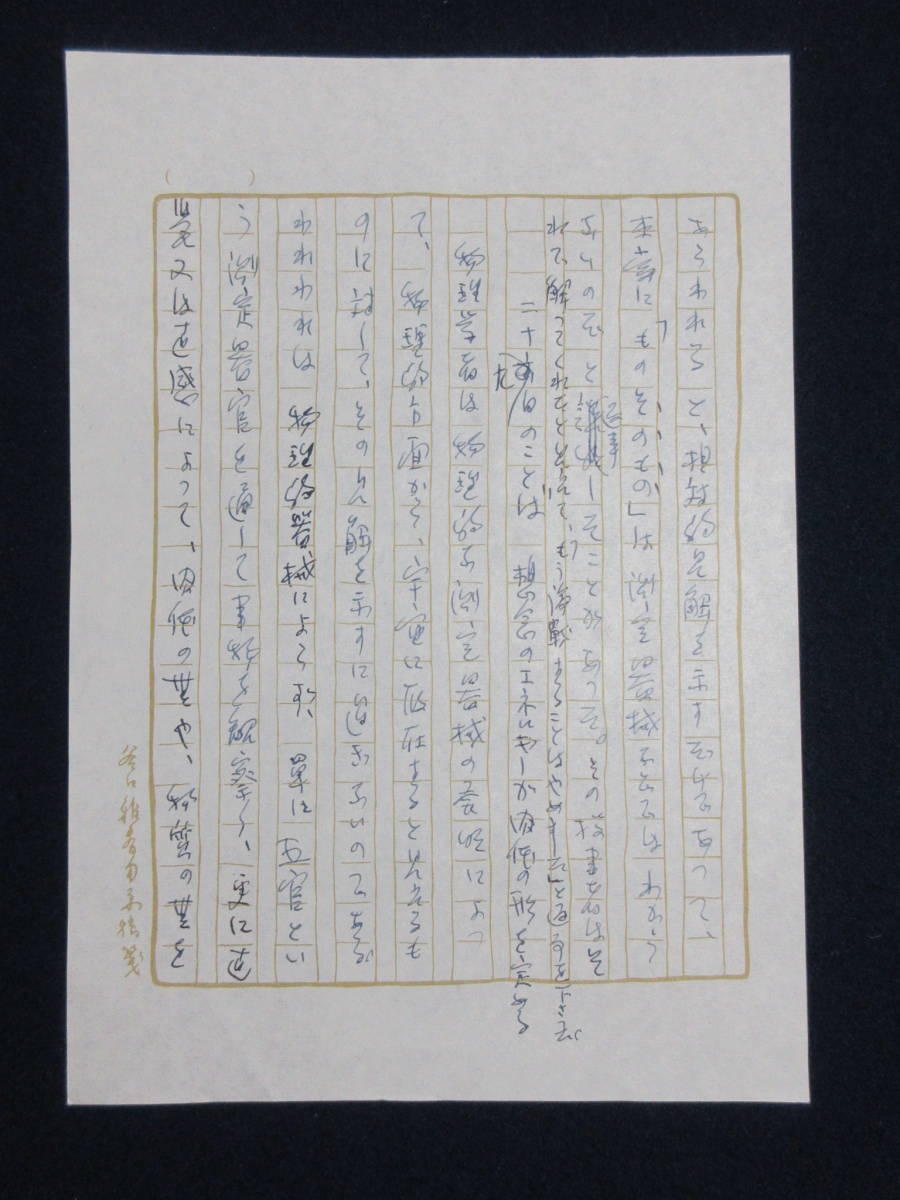 あらわれると、相対的見解を示すだけであって、
本当に「ものそのもの」は測定器械などではわかって
ないのだと返事したことがあった。その投書者はそ
れで解ってくれたと見えて、「もう論戦することはやめました」と返事を下さった。
二十九日のことば 想念のエネルギーが肉体の形を変える
物理学者は物理的な測定器械の発明によっ
て、物理的方面から、宇宙に存在すると見えるも
のに対して、その見解を示すに過ぎないのであるが
われわれは物理的器械によらず、単に五官とい
う測定器官を通して事物を観察し、更に直
覚又は直感によって、肉体の世や、物質の世を
谷口雅春用原稿箋